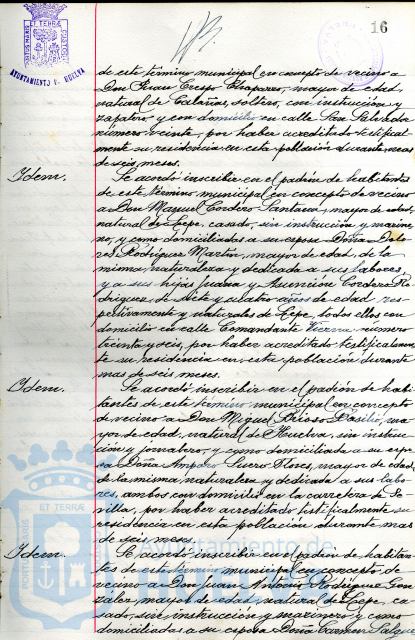 16
AYUNTAMIENTO DE HUELVA
de este término municipal en concepto de vecino a
Don Juan Crespo Chaparro, mayor de edad,
natural de Calañas, soltero, con instrucción y
zapatero y con domicilio en calle San Salvador
número veinte, por haber acreditado testifical-
mente su residencia en esta población durante mas
de seis meses.
Idem. Se acordó inscribir en el padrón de habitantes
de este término municipal en concepto de vecino
a Don Manuel Cordero Santana, mayor de edad,
natural de Lepe, casado, sin instrucción y marine-
ro, y como domiciliadas a su esposa Doña Dolo-
res Rodríguez Martín, mayor de edad, de la
misma naturaleza y dedicada a sus labores,
y a sus hijas Juana y Asunción Cordero Ro-
dríguez, de siete y cuatro años de edad res-
pectivamente y naturales de Lepe, todos ellos con
domicilio en calle Comandante Vierna número
veinte y seis, por haber acreditado testificalmen-
te su residencia en esta población durante
mas de seis meses.
Idem. Se acordó inscribir en el padrón de habi-
tantes de este término municipal en concepto
de vecino a Don Miguel Brioso Basilio, ma-
yor de edad, natural de Huelva, sin instruc-
ción y jornalero, y como domiciliada a su espo-
sa Doña Amparo Suero Flores, mayor de edad
de la misma naturaleza y dedicada a sus labo-
res, ambos con domicilio en la carretera de Se-
villa, por haber acreditado testificalmente su
residencia en esta población durante mas
de seis meses.
Idem. Se acordó inscribir en el padrón de habitan-
tes de este término municipal en concepto de
vecino a Don Juan Antonio Rodríguez Gon-
zález, mayor de edad, natural de Lepe, ca-
sado, sin instrucción y marinero y como
domiciliadas a su esposa Doña Carmen Sal
Ayuntamiento de
HUELVA
PORTUS MARIS ET TERRÆ